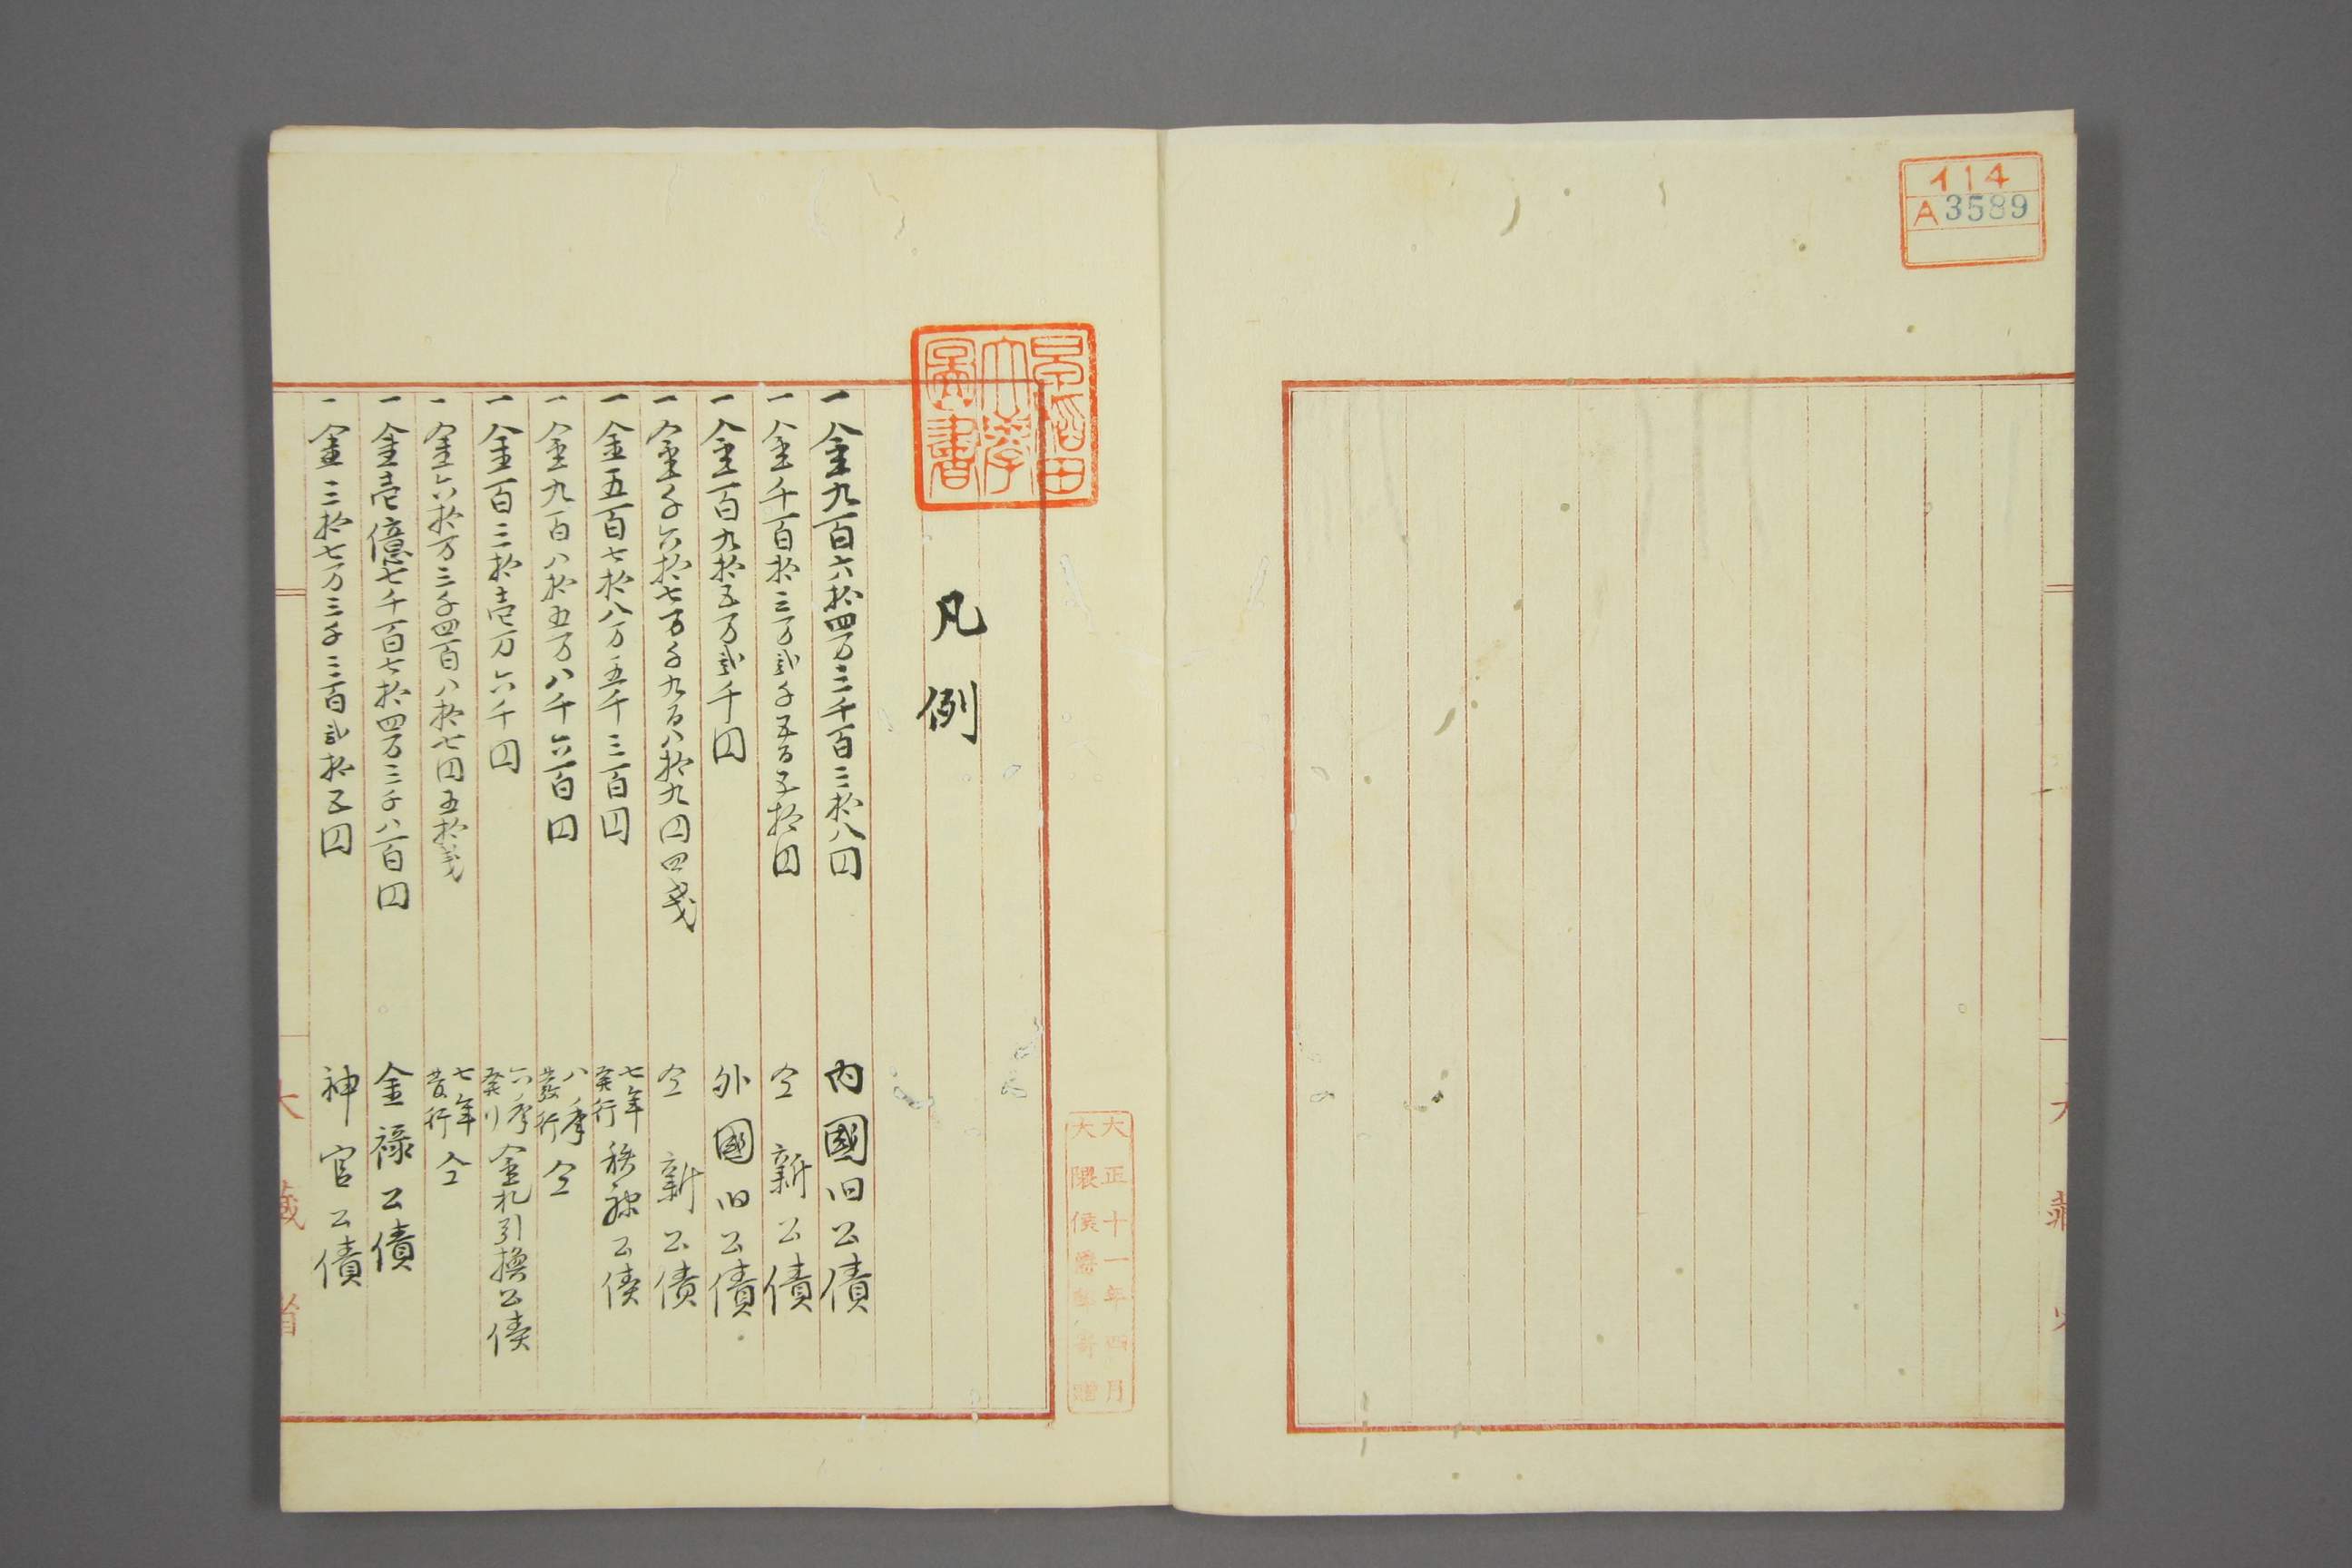 イ14
A3589
早稲田
大學
圖書
大正十一年四月
大隈侯爵家寄贈
凡例
一金九百六拾四万三千百三拾八円 内國旧公債
一金千百拾三万弐千五百五拾円 仝 新公債
一金百九拾五万弐千円 外國旧公債
一金千六拾七万千九百八拾九円四戔 仝 新公債
一金五百七拾八万五千三百円 七年発行 秩禄公債
一金九百八拾五万八千六百円 八年発行 仝
一金百三拾壱万六千円 六年発行 金札引換公債
一金六拾万三千四百八拾七円五拾戔 七年発行 仝
一金壱億七千百七拾四万三千八百円 金禄公債
一金三拾七万三千三百弐拾五円 神官公債
大藏省